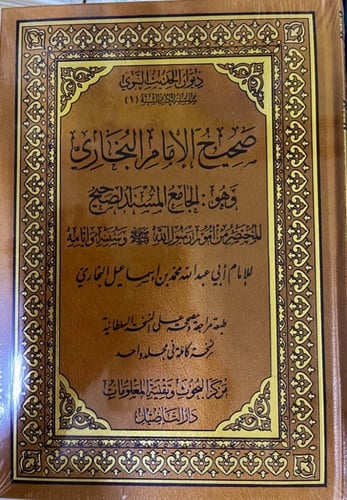 ديوان الحديث النبوي
موسوعة الكتب الستة (١)
صحيح الإمام البخاري
وهو: الجامع المسند الصحيح
المختصر من أمور رسول الله ﷺ وسننه وأيامه
للإمام أبي عبد الله محمد بن إسماعيل البخاري
طبعة مراجعة مصححة على النسخة السلطانية
نسخة كاملة في مجلد واحد
مركز البحوث وتقنية المعلومات
دار التأصيل